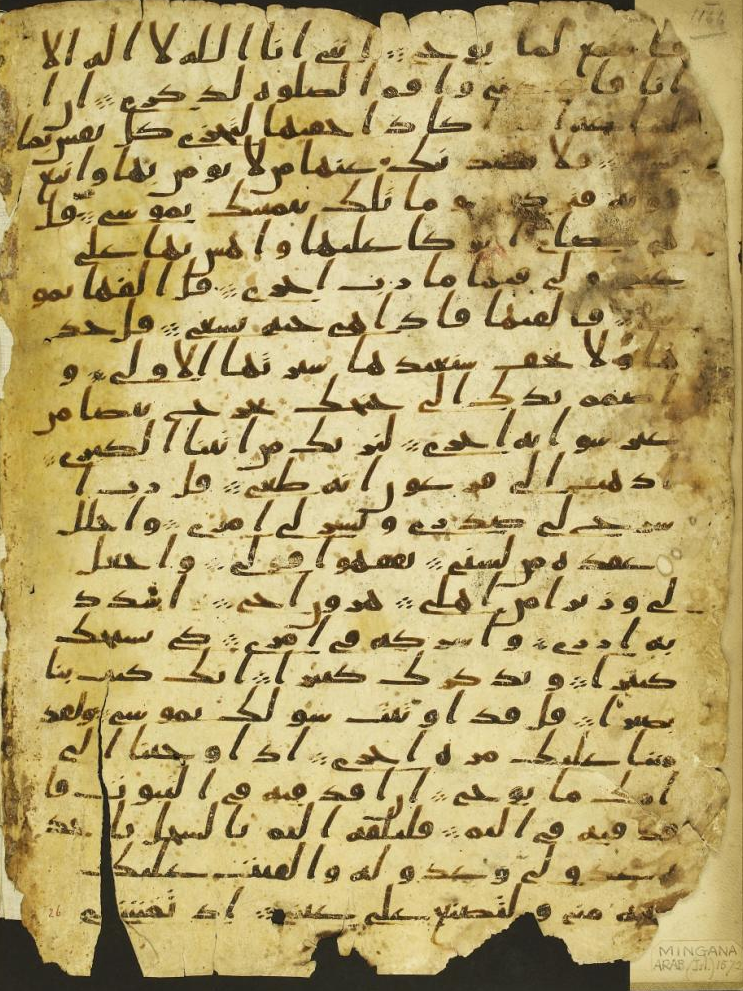 فاستمع لما يوحى انني انا الله لا اله الا
انا فاعبدني واقم الصلوه لذكري ان ا
اكاد اخفيها لتجزى كل نفس بما
فلا يصدنك عنها من لا يومن بها واتبع
هويه فتردى وما تلك بيمينك يموسى قل
هي عصاي اتوكا عليها واهش بها على
غنمي ولي فيها مارب اخرى قل القها يمو
سى فالقيها فاذا هي حيه تسعى قل خذ
ها ولا تخف سنعيدها سيرتها الاولى و
اضمم يدك الى جنحك تخرج بيضا من
غير سو ايه اخرى لنريك من ايتنا الكبرى
اذهب الى فرعون انه طغى قل رب ا
شرح لي صدري ويسر لي امري واحلل
عقده من لسني يفقهوا قولي واجعل
لي وزيرا من اهلي هرون اخي اشدد
به ازري واشركه في امري كي نسبحك
كثيرا ونذكرك كثيرا انك كنت بنا
بصيرا قل قد اوتيت سولك يموسى ولقد
مننا عليك مره اخرى اذ اوحينا الى
امك ما يوحى ان اقذفيه في التبوت فا
قذفيه في اليم فليلقه اليم بالسحل ياخذ
ه عدو لي وعدو له والقيت عليك
محبه مني ولتصنع على عيني اذ تمشي
26
MINGANA
ARAB. (Isl.) 1572